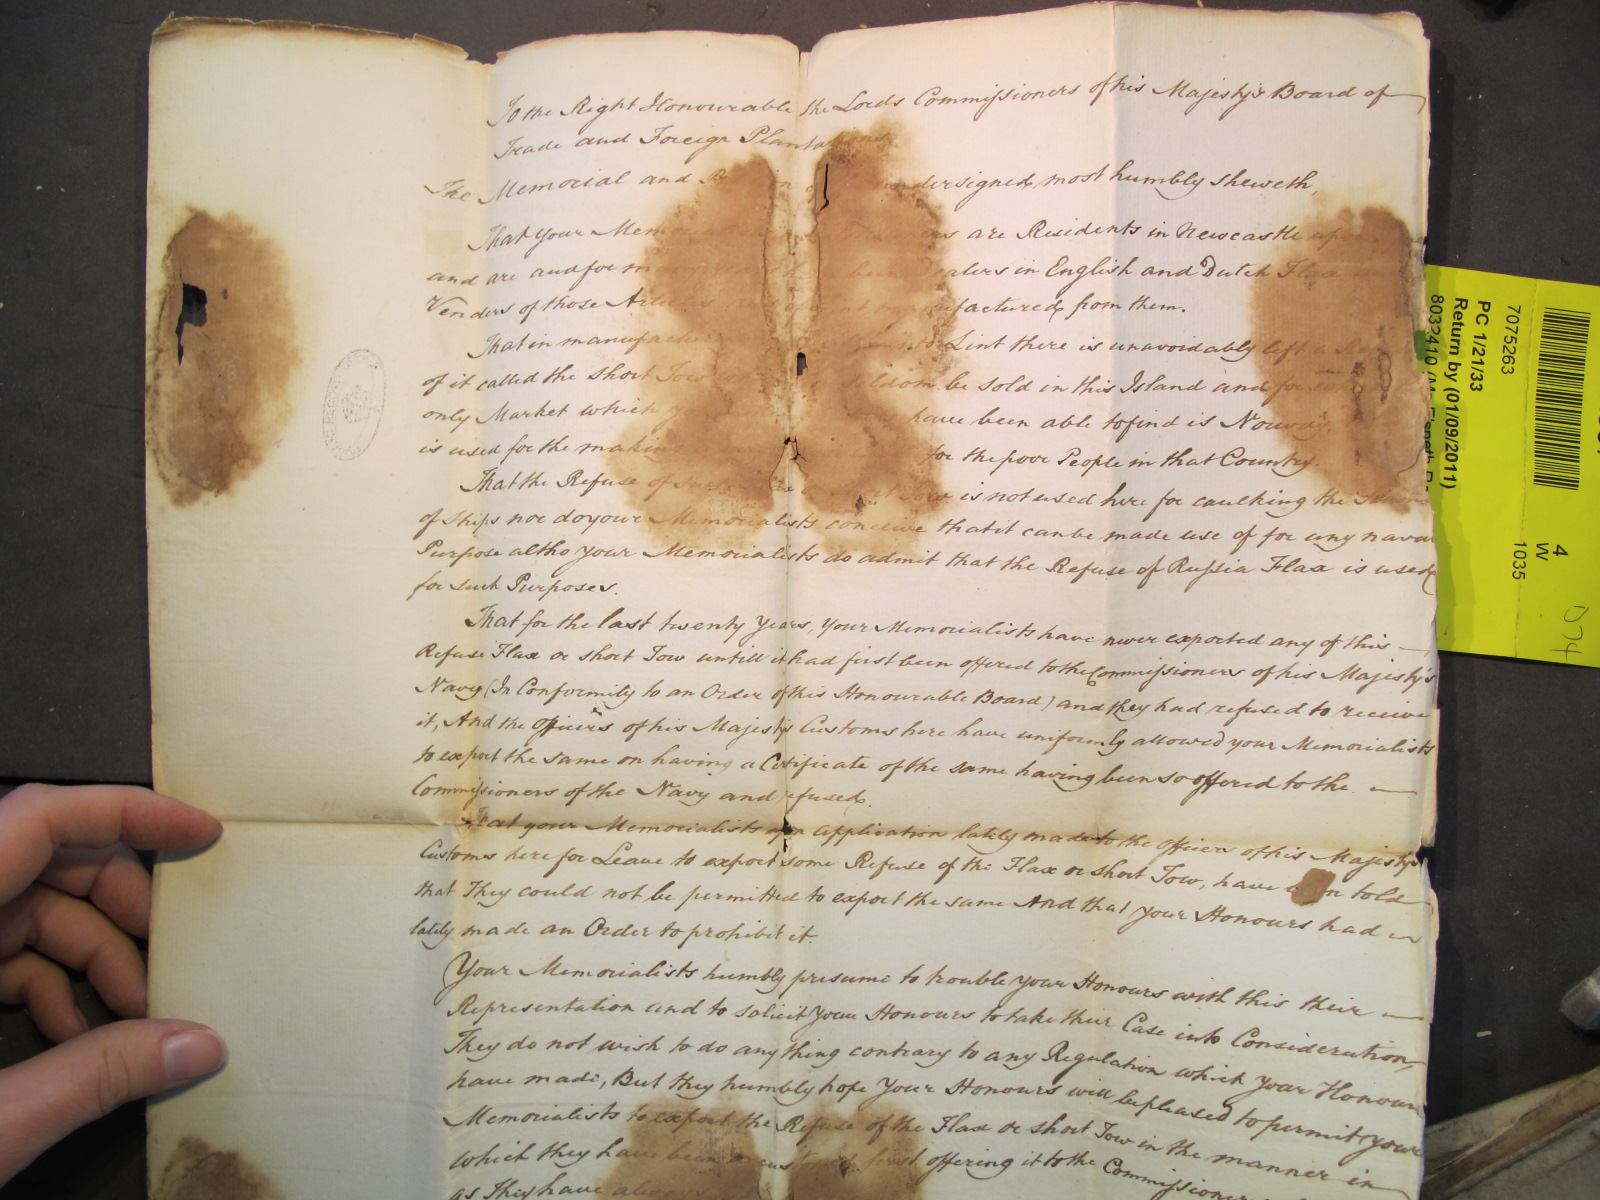 To the Right Honourable the Lords Commissioners of his Majesty's Board of
Trade and Foreign Plantations
The Memorial and undersigned, most humbly sheweth,
That your are Residents in Newcastle upon
and are and for many dealers in English and Dutch Flax
Venders of those Articles manufactured from them.
That in manufacturing Lint there is unavoidably left a
of it called the short Tow seldom be sold in this Island and for
only Market which have been able to find is Norway,
is used for the making for the poor People in that Country.
That the Refuse of Tow is not used here for caulking the
of Ships nor do your Memorialists conceive that it can be made use of for any naval
Purpose altho your Memorialists do admit that the Refuse of Russia Flax is used
for such Purposes.
That for the last twenty Years, your Memorialists have never exported any of this
Refuse Flax or short Tow untill it had first been offered to the Commissioners of his Majesty's
Navy (In Conformity to an Order of this Honourable Board) and they had refused to receive
it, And the Officers of his Majestys Customs here have uniformly allowed your Memorialists
to export the same on having a Certificate of the same having been so offered to the
Commissioners of the Navy and refused.
That your Memorialists upon application lately made to the officers of his Majestys
Customs here for Leave to export some Refuse of the Flax or short Tow, have been told
that They could not be permitted to export the same And that your Honours had
lately made an Order to prohibit it.
Your Memorialists humbly presume to trouble your Honours with this their
Representation and to solicit your Honours to take their Case into Consideration,
They do not wish to do any thing contrary to any Regulation which your Honours
have made, But they humbly hope your Honours will be pleased to permit your
Memorialists to export the Refuse of the Flax or short Tow in the manner in
which they have been accustomed first offering it to the Commissioners
as They have
7075263
PC 1/21/33
Return by (01/09/2011)
8032410
4
W
1035
074